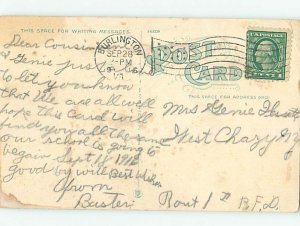 THIS SPACE FOR WRITING MESSAGES
BURLINGTON
SEP 28
PM
VT.
POST CARD
THIS SPACE FOR ADDRESS ONLY
Dear Cousin
Genie just
to let you know
that We are all well
hope this Card will
find you all the same
our school is going to
began Sept 18, 1912
good by will Best Wishes
from
Buster
Mrs Genie
West Chazy N.Y.
Rout 1 R.F.D.